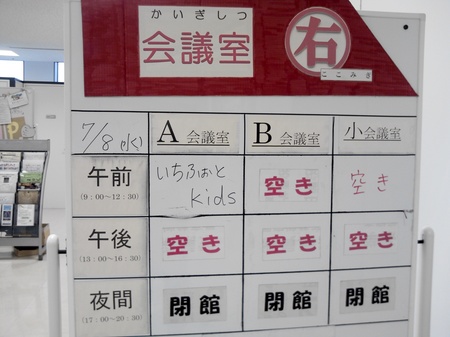 かいぎしつ
会議室
右
ここみぎ
7/8(水) A会議室 B会議室 小会議室
午前 いちふぉと 空き 空き
(9:00～12:30) kids
午後 空き 空き 空き
(13:00～16:30)
夜間 閉館 閉館 閉館
(17:00～20:30)